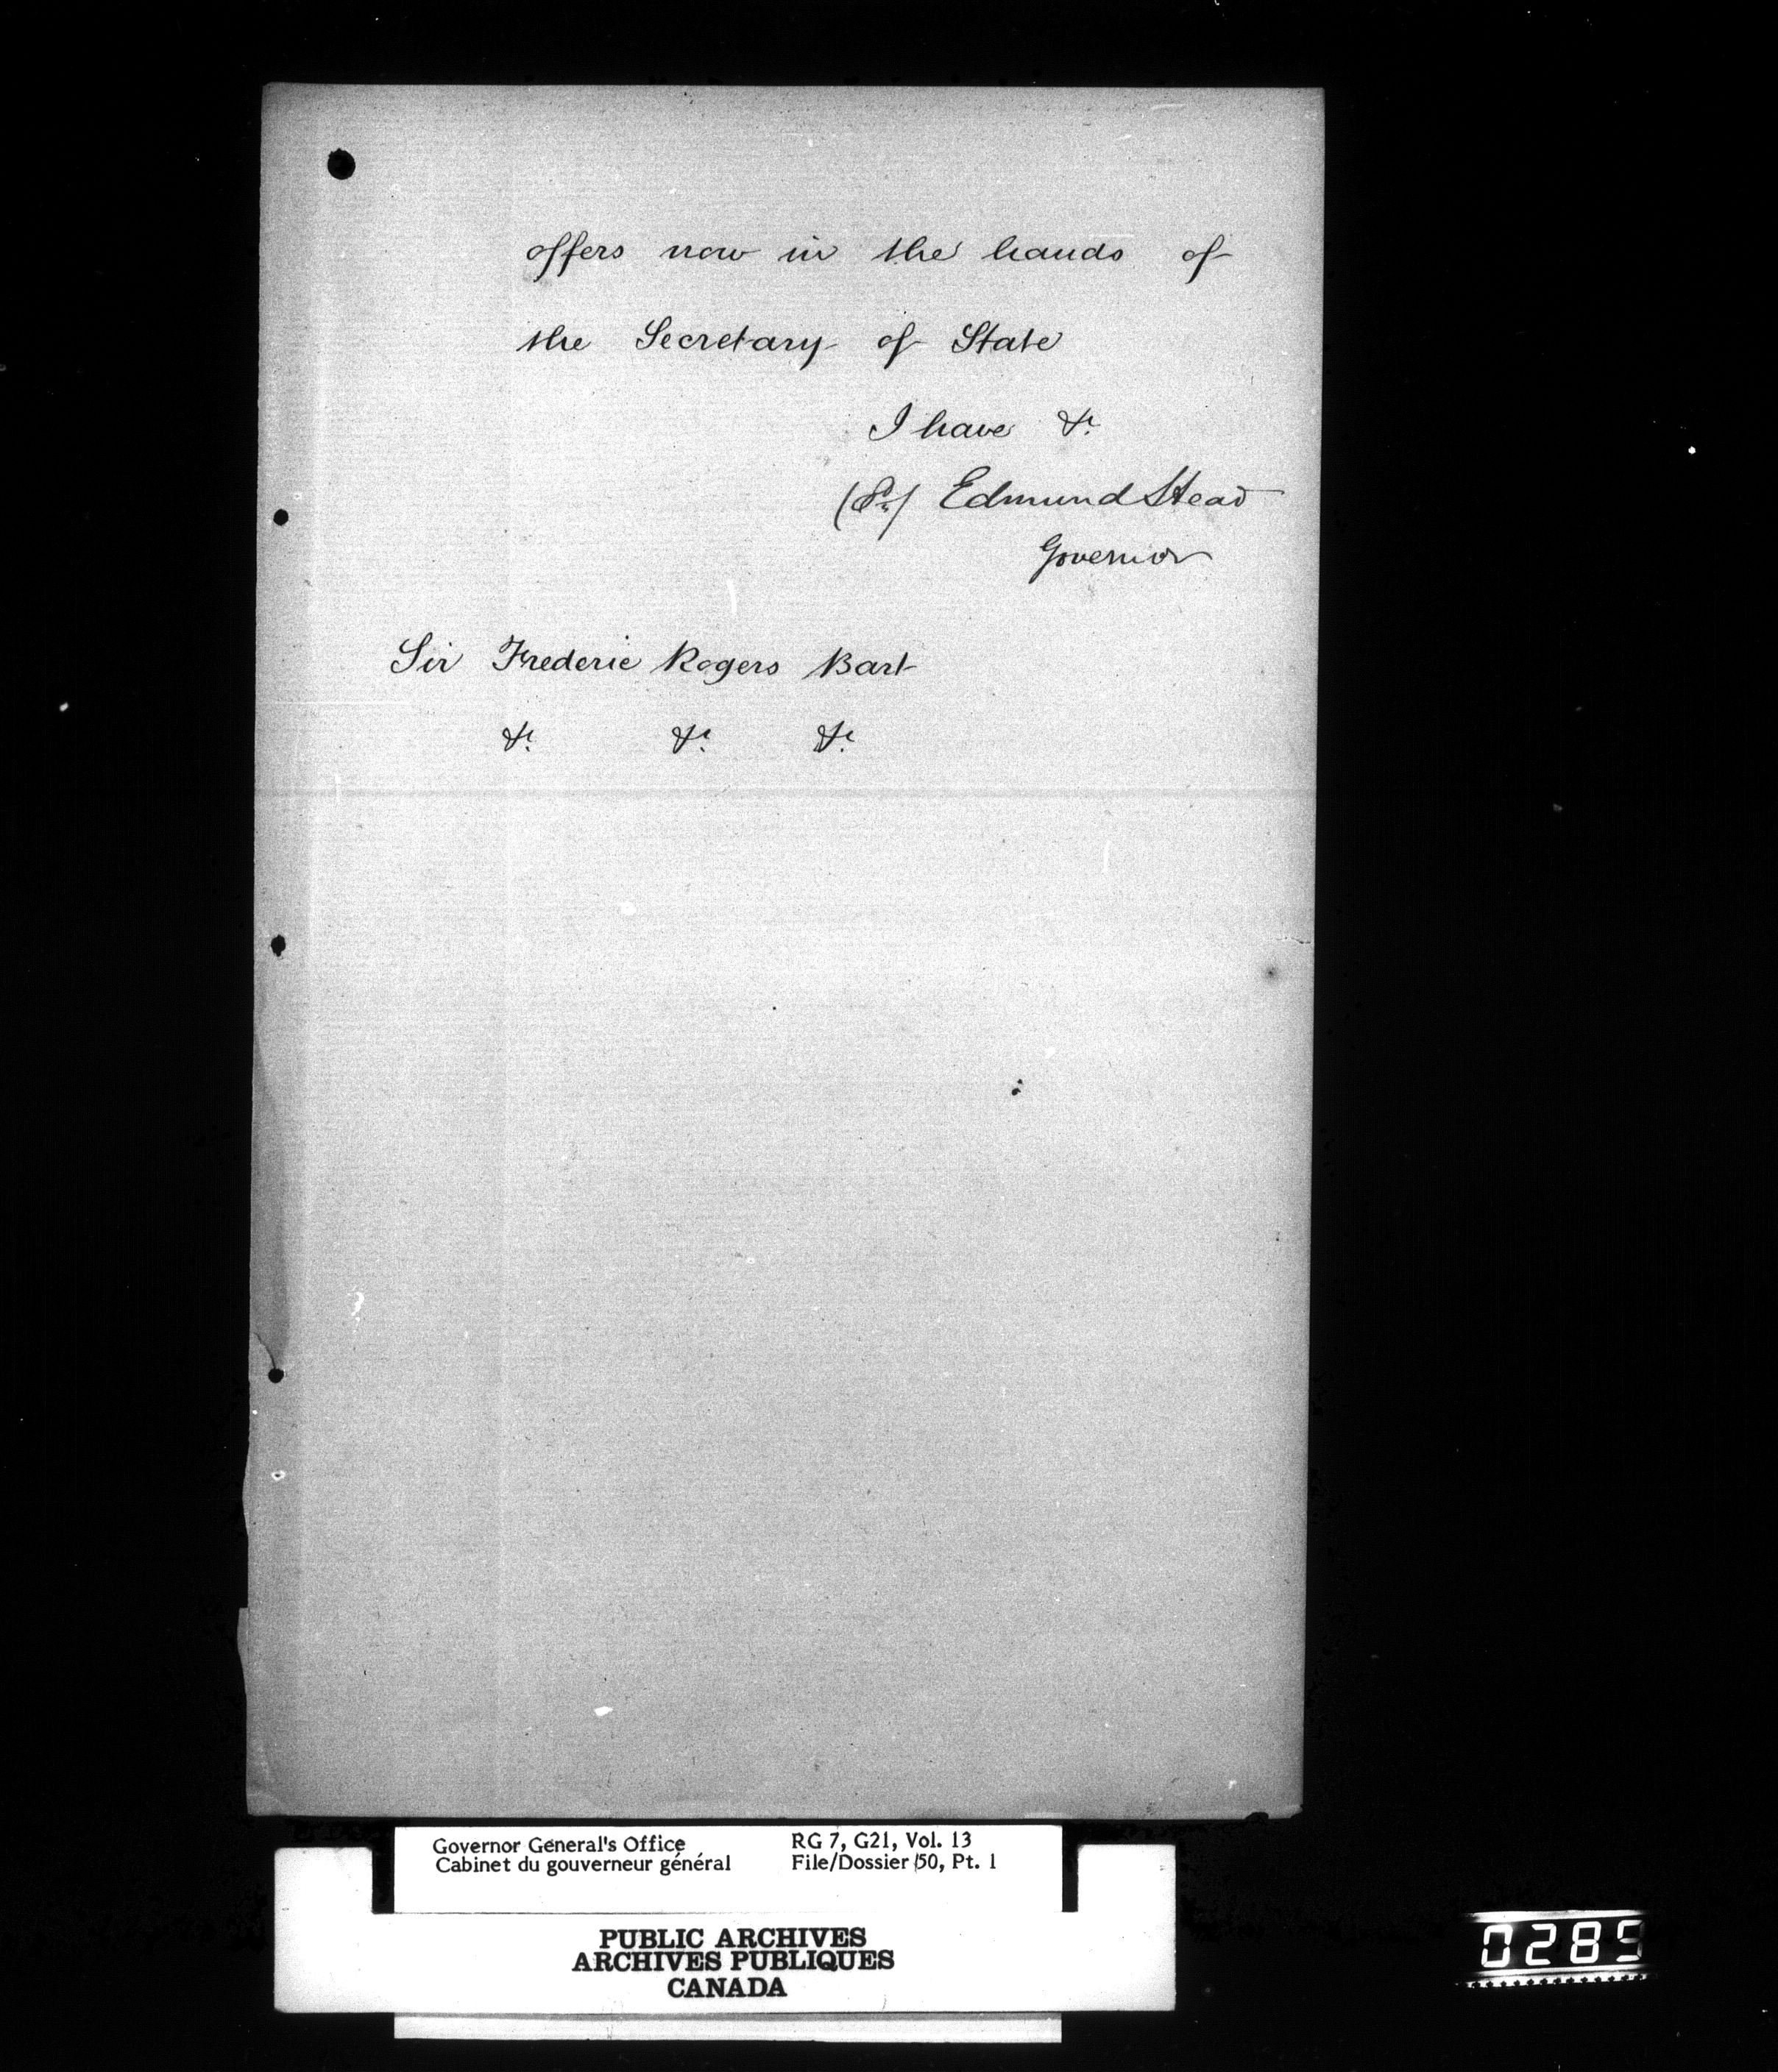 offers now in the hands of
the Secretary of State
I have &c.
Edmund Head
Governor
Sir Frederic Rogers Bart
&c. &c. &c.
Governor General's Office
Cabinet du gouverneur général
RG 7, G21, Vol. 13
File/Dossier 150, Pt. 1
PUBLIC ARCHIVES
ARCHIVES PUBLIQUES
CANADA
0285